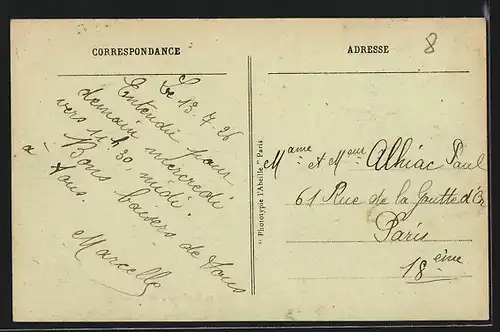 CORRESPONDANCE
Le 13.7.26
Entendu pour
demain mercredi
vers 11h 30, midi.
Bons baisers de tous
à tous
Marcelle
" Phototypie l'Abeille " Paris
ADRESSE
8
Mame et Meur Alhiac Paul
61 Rue de la Goutte d'Or
Paris
18ème